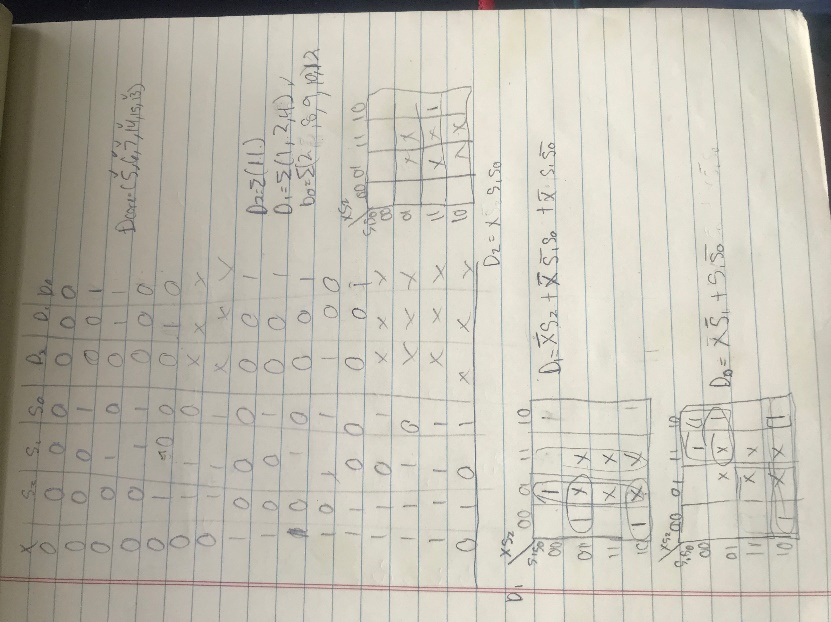 X S2 S1 S0 D2 D1 D0
0 0 0 0 0 0 0
0 0 0 1 0 0 1
0 0 1 0 0 1 1
0 0 1 1 0 0 0
0 1 0 0 0 1 0
0 1 1 0 X X X
0 1 1 1 X X X
1 0 0 0 0 0 1
1 0 0 1 0 0 1
1 0 1 0 0 0 1
1 0 1 1 1 0 0
1 1 0 0 0 0 1
1 1 0 1 X X X
1 1 1 0 X X X
1 1 1 1 X X X
0 1 0 1 X X X
D2=Σ(11)
D1=Σ(1,2,4)
XS2
S1S0
00 01 11 10
00
01 X X
11 X X 1
10 X X
D2 = X S1S0
D1
XS2
S1S0
00 01 11 10
00 1
01 1 X X
11 X X
10 1 X X
D1 = X̄S2 + X̄ S̄1S0 + X̄ S1S̄0
XS2
S1S0
00 01 11 10
00 1 1
01 X X 1
11 X X
10 1 X X 1
D0 = XS̄1 + S1S̄0